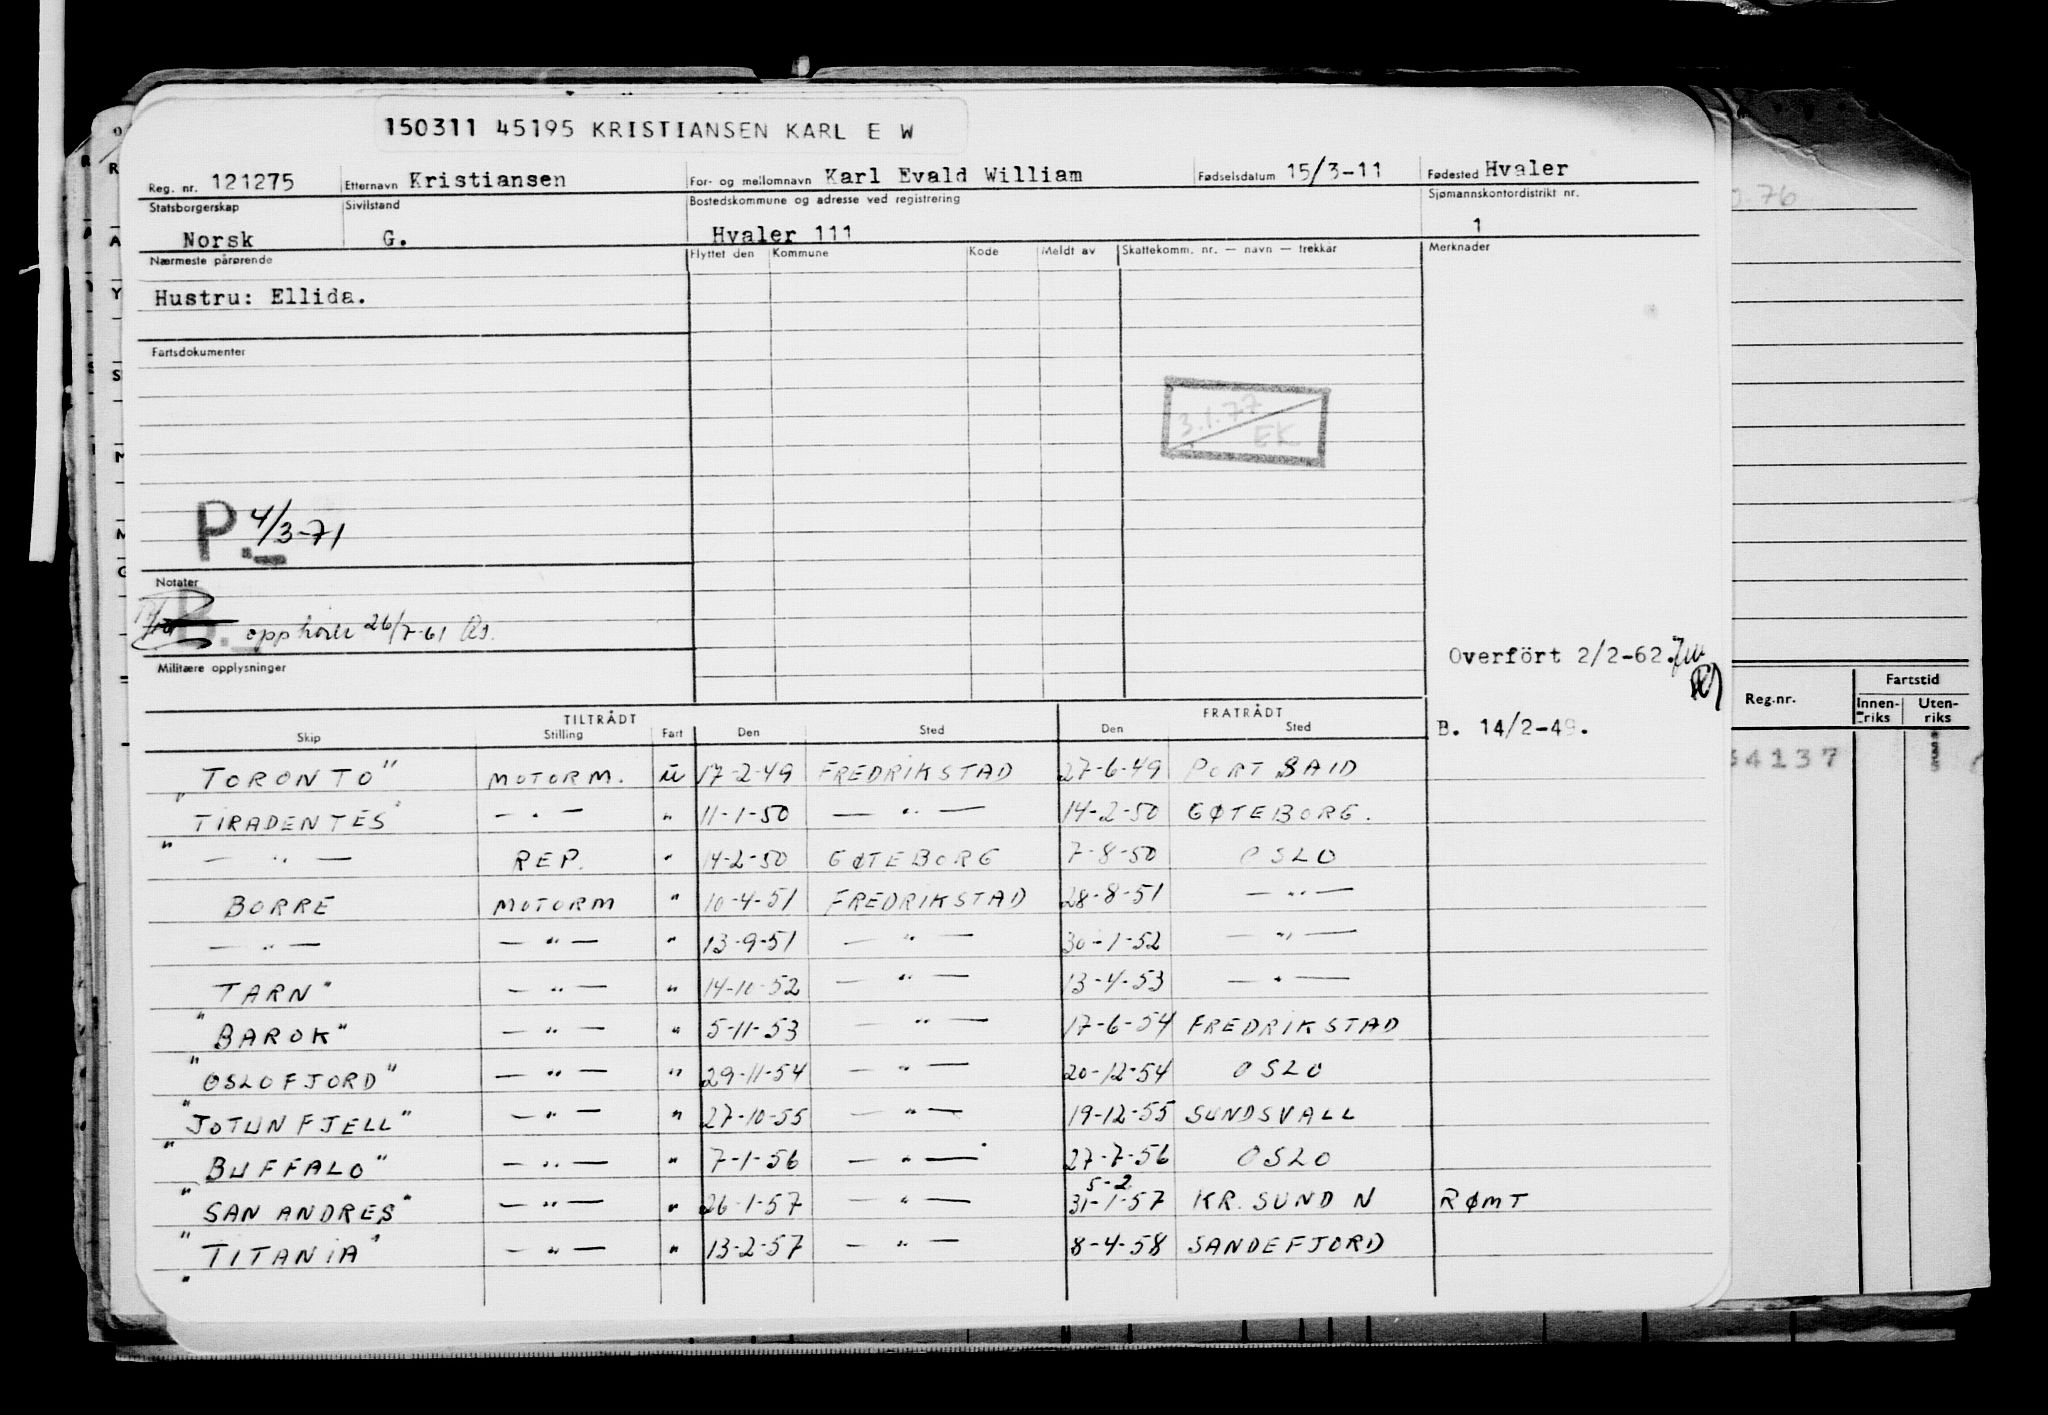 150311 45195 KRISTIANSEN KARL E W
Reg. nr. 121275 Etternavn Kristiansen For- og mellomnavn Karl Evald William Fødselsdatum 15/3-11 Fødested Hvaler
Statsborgerskap Sivilstand Bostedskommune og adresse ved registrering Sjømannskontordistrikt nr.
Norsk G. Hvaler 111 1
Nærmeste pårørende Flyttet den Kommune Kode Meldt av Skattekomm. nr. — navn — trekkar Merknader
Hustru: Ellida.
Fartsdokumenter
3.1.77
EK
P. 4/3-71
Notater
B. opphørte 26/7-61
Overfört 2/2-62.
Militære opplysninger
TILTRÅDT FRATRÅDT
Skip Stilling Fart Den Sted Den Sted
B. 14/2-49.
"TORONTO" MOTORM. U 17-2-49 FREDRIKSTAD 27-6-49 PORT SAID
"TIRADENTES" — " — " 11-1-50 — " — 14-2-50 GØTEBORG.
— " — REP. " 14-2-50 GØTEBORG 7-8-50 OSLO
BORRE MOTORM " 10-4-51 FREDRIKSTAD 28-8-51 — " —
— " — — " — " 13-9-51 — " — 30-1-52 — " —
TARN" — " — " 14-10-52 — " — 13-4-53 — " —
"BAROK" — " — " 5-11-53 — " — 17-6-54 FREDRIKSTAD
"OSLOFJORD" — " — " 29-11-54 — " — 20-12-54 OSLO
"JOTUNFJELL" — " — " 27-10-55 — " — 19-12-55 SUNDSVALL
"BUFFALO" — " — " 7-1-56 — " — 27-7-56 OSLO
5-2
"SAN ANDRES" — " — " 26-1-57 — " — 31-1-57 KR. SUND N RØMT
"TITANIA" — " — " 13-2-57 — " — 8-4-58 SANDEFJORD
"
Reg.nr. Fartstid
Innen-riks Uten-riks
4137